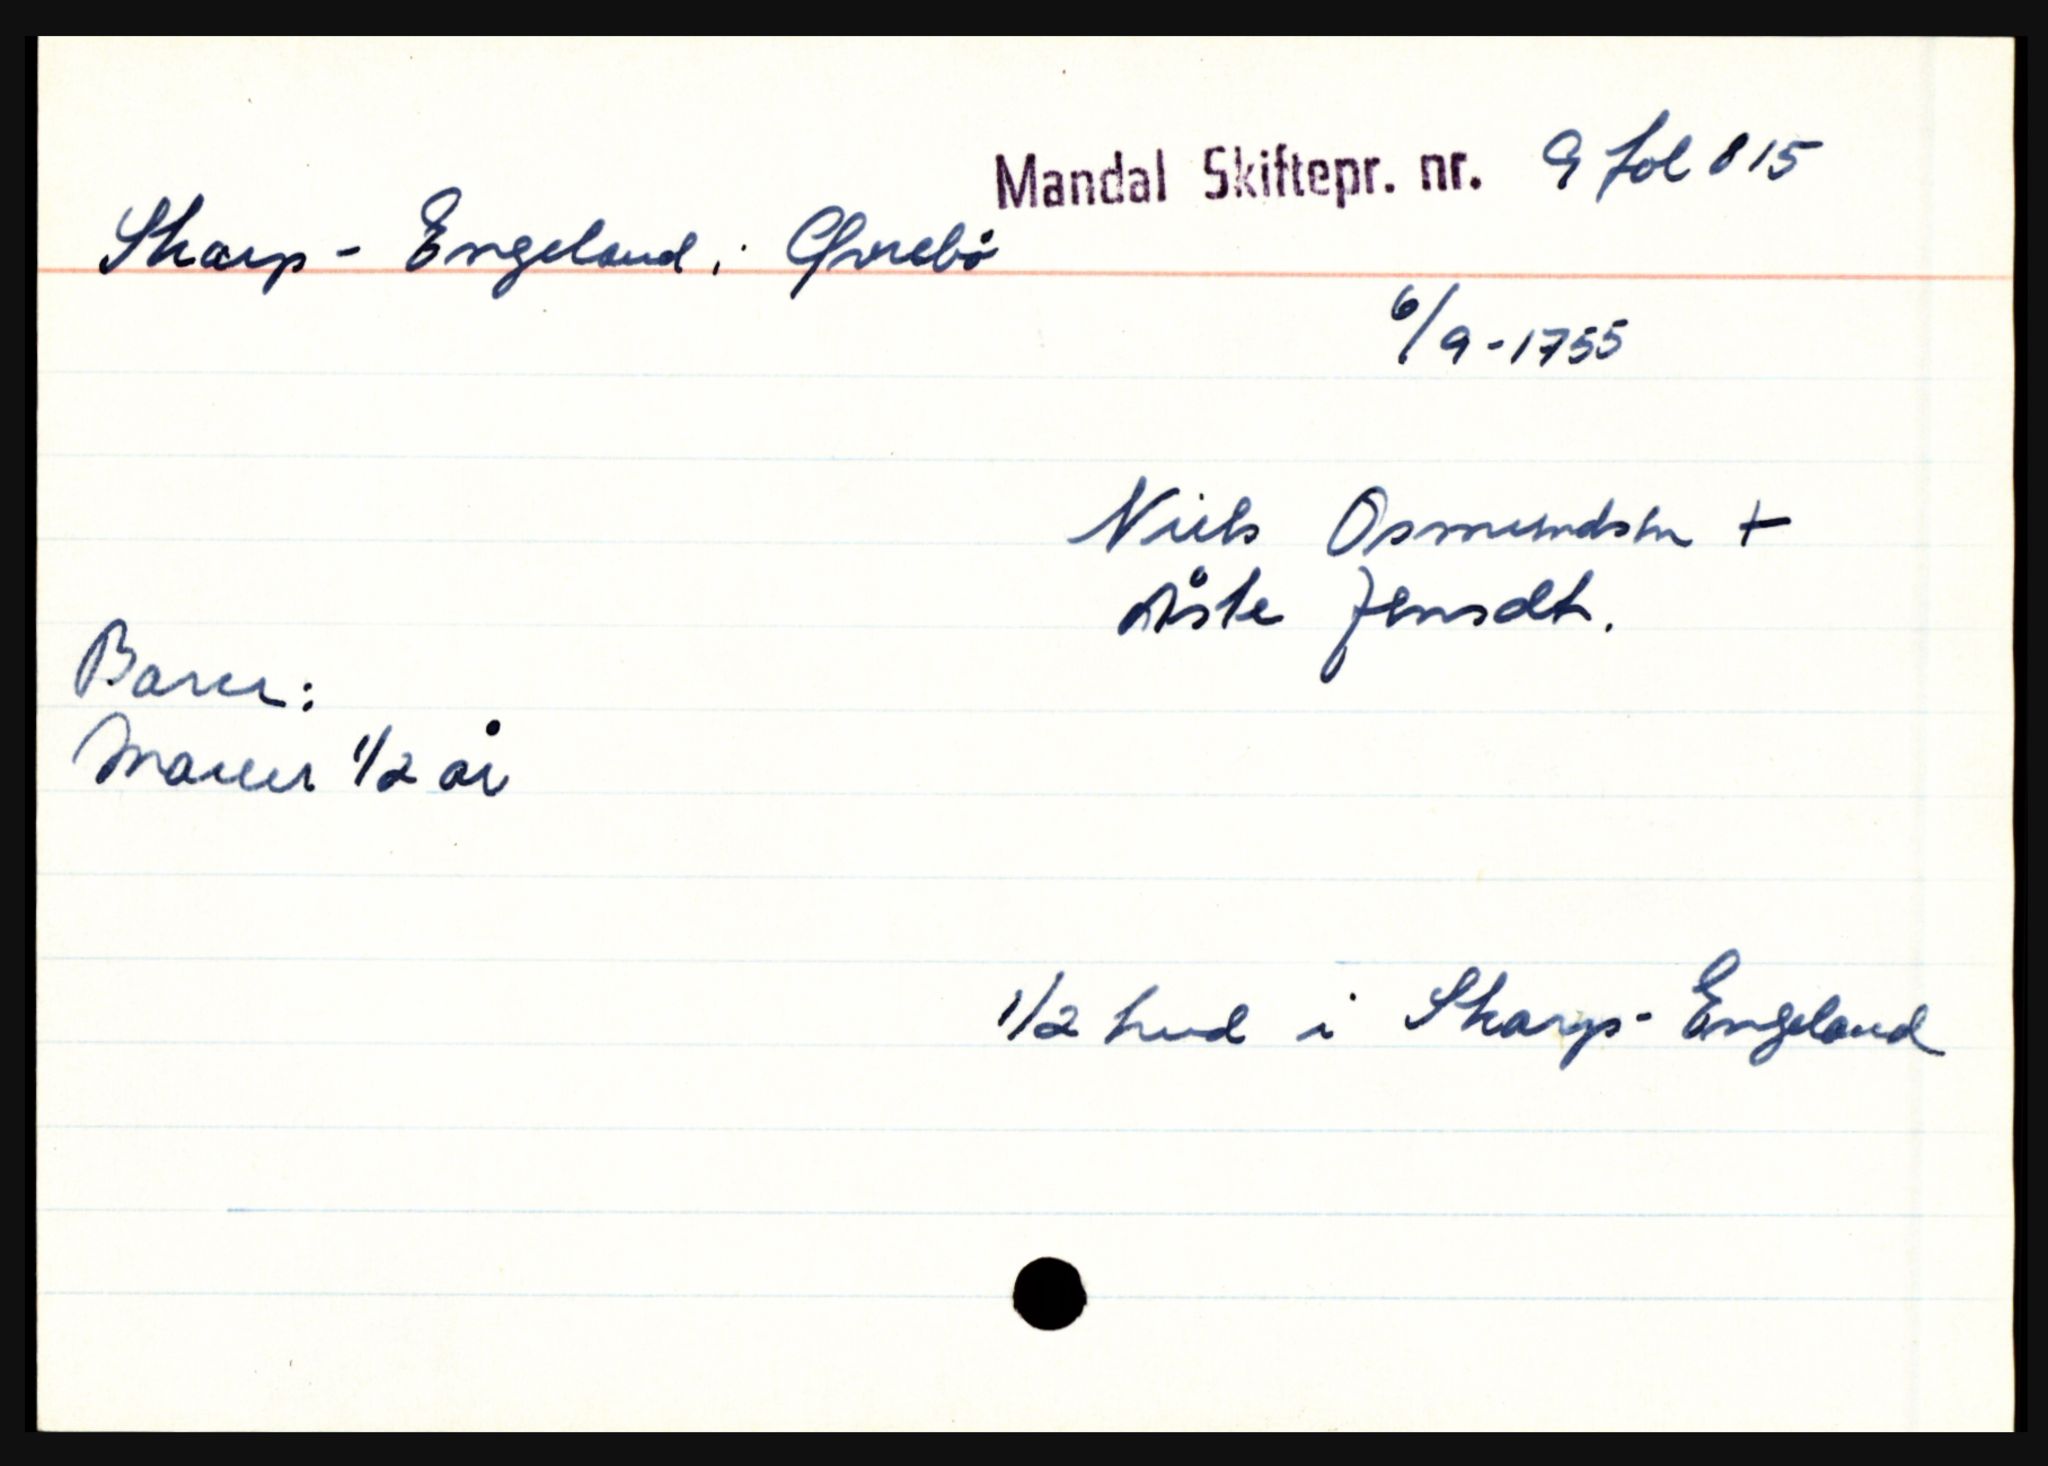 Mandal Skiftepr. nr. 9 fol 815
Skarp - Engeland, Øvrebø
6/9-1755
Niels Osmundsen +
Åste Jensdt.
Barn:
Maren 1/2 år
1/2 hud i Skarp-Engeland